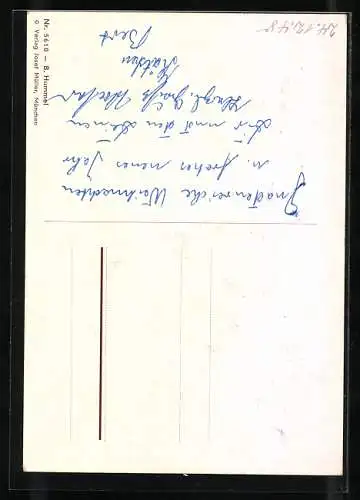 Gnadenreiche Weihnachten
u. frohes neues Jahr
Dir und den Deinen
Herzl. Grüße
Bert
24.12.48
Nr. 5618 — B. Hummel
© Verlag Josef Müller, München